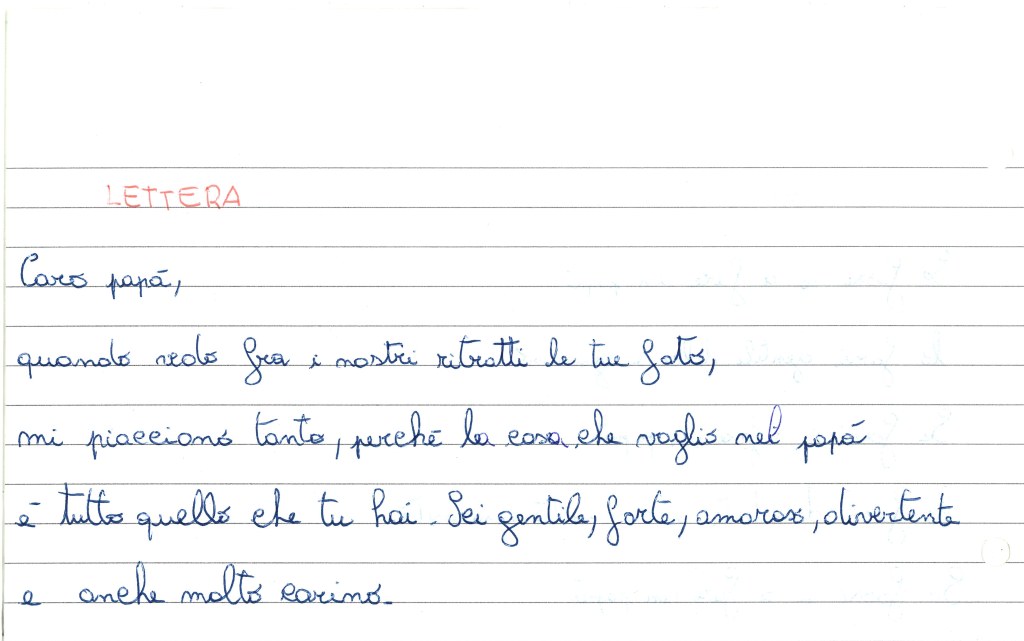 LETTERA
Caro papá,
quando vedo fra i nostri ritratti le tue foto,
mi piacciono tanto, perché la cosa che voglio nel papá
é tutto quello che tu hai. Sei gentile, forte, amoroso, divertente
e anche molto carino.